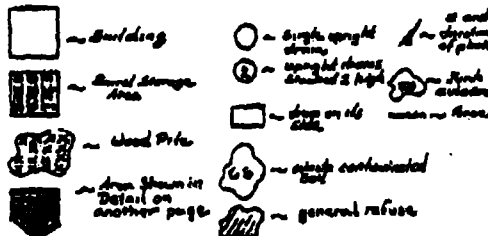 ~ Building
~ Barrel Storage
Area
~ Wood Pile
~ Area Shown in
Detail on
another page
~ Single upright
drum
2 ~ upright drums,
stacked 2 high
~ drum on its
side
CS ~ contaminated
Soil
~ general refuse
# and
direction
of photo
~
~